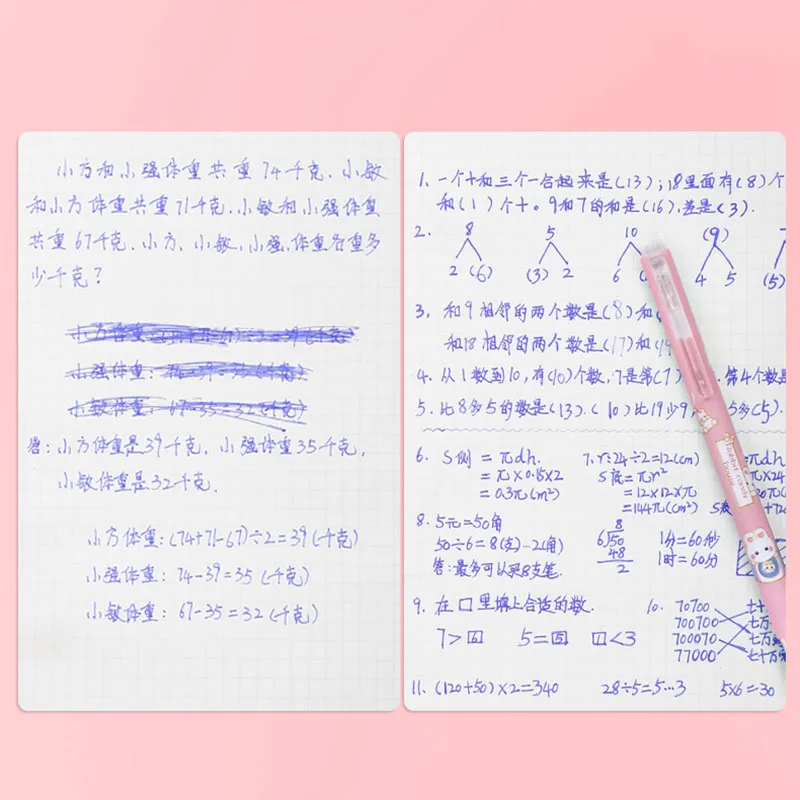 小方和小强体重共重74千克.小敏
和小方体重共重71千克.小敏和小强体重
共重67千克.小方、小敏,小强.体重各重多
少千克?
小强体重:
小敏体重: 67-35=32(千克)
答:小方体重是39千克,小强体重35千克,
小敏体重是32千克.
小方体重:(74+71-67)÷2=39(千克)
小强体重: 74-39=35 (千克)
小敏体重: 67-35=32(千克)
1.一个十和三个一合起来是(13);18里面有(8)个
和(1)个十。9和7的和是(16),差是(3).
2. 8 5 10 (9) 7
2 (6) (3) 2 6 4 5 (5)
3, 和9相邻的两个数是(8)和
和18相邻的两个数是(17)和(19
4. 从1数到10,有(10)个数,7是第(7) 第4个数是
5. 比8多5的数是(13).(10)比19少9, 5多(5).
6. S侧 = πdh.
= π×0.15×2
= 0.3π(m²)
7. r:24÷2=12(cm)
S底=πr²
=12×12×π
=144π(cm²)
=πdh
π×24
8. 5元=50角
50÷6=8(支)…2(角)
答:最多可以买8支笔.
8
6√50
48
2
1分=60秒
1时=60分
9. 在口里填上合适的数.
7>四 5=五 口<3
10. 70700 七十
700700 七万
700070 七万
77000 七十万
11. (120+50)×2=340 28÷5=5…3 5×6=30
rabbit candy